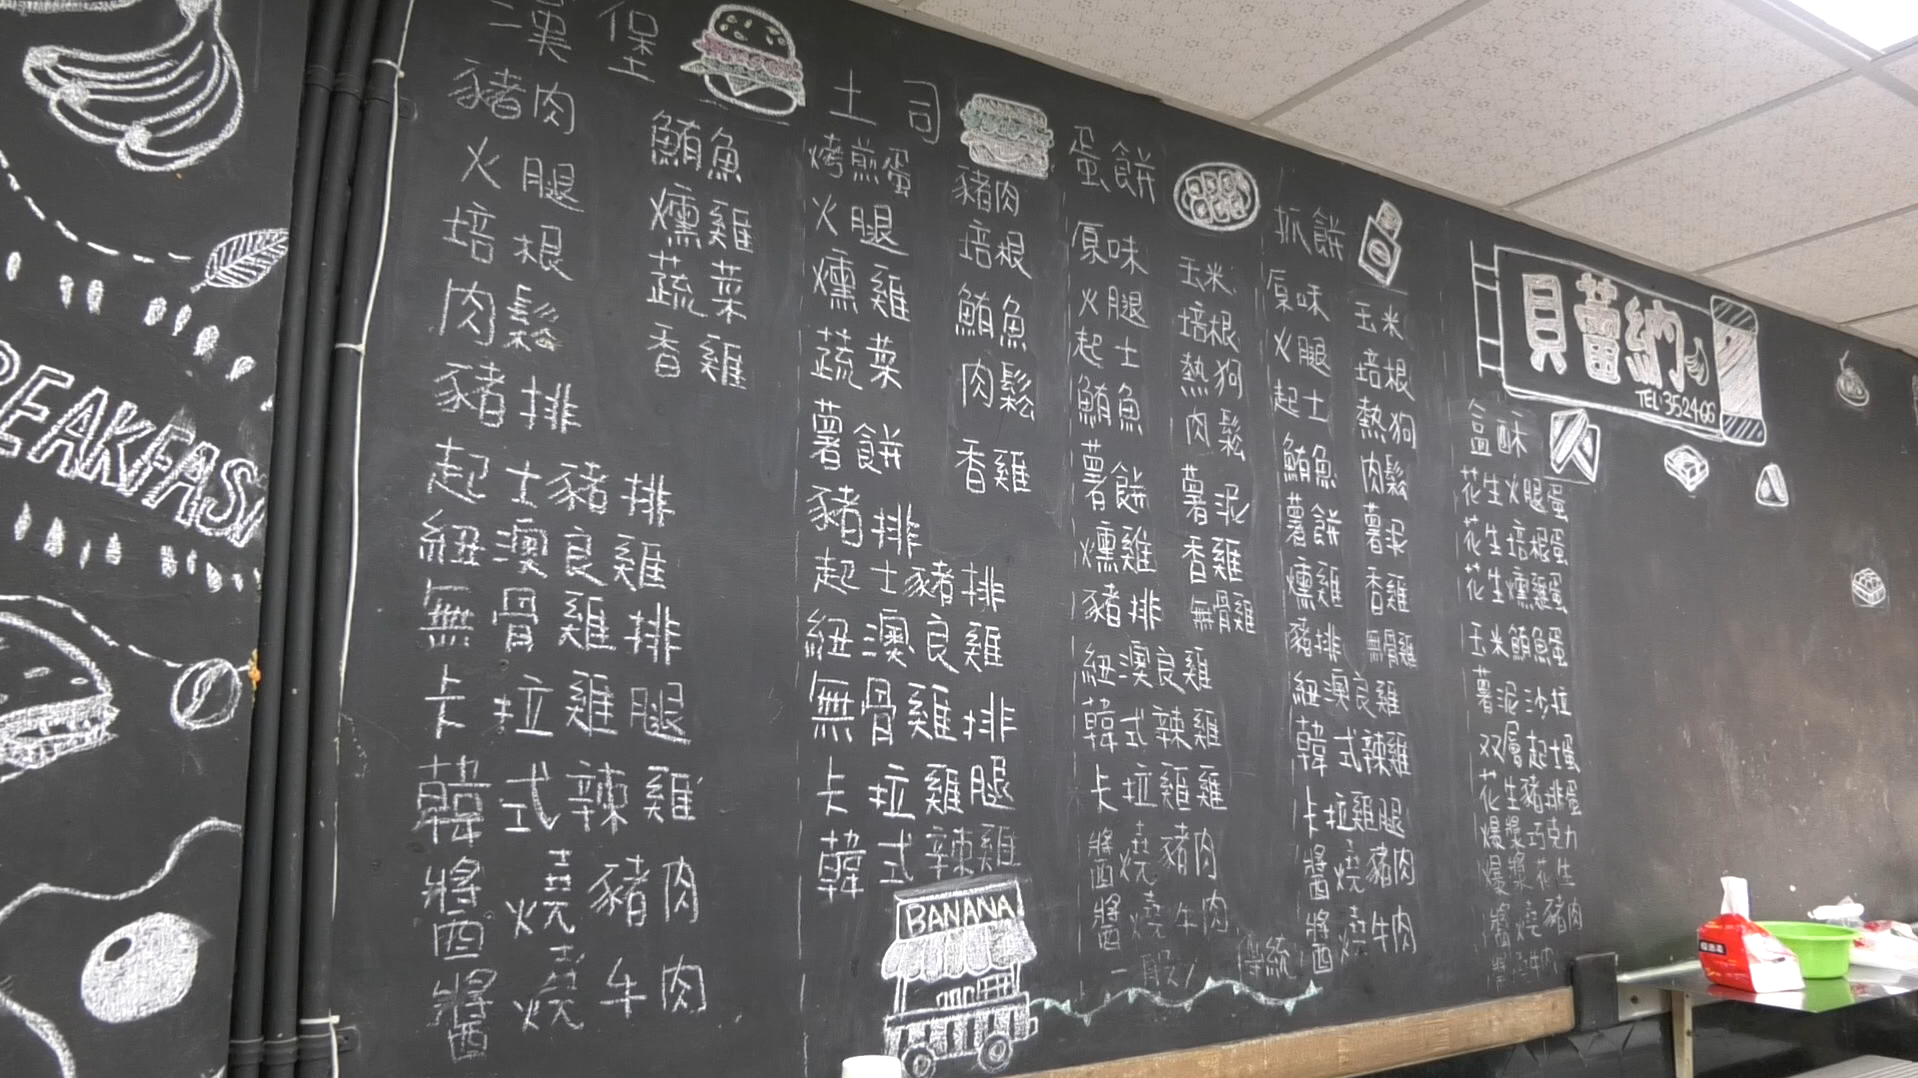 BREAKFAST
漢堡
豬肉
火腿
培根
肉鬆
豬排
起士豬排
紐澳良雞
無骨雞排
卡拉雞腿
韓式辣雞
醬燒豬肉
醬燒牛肉
鮪魚
燻雞
蔬菜
香雞
土司
烤煎蛋
火腿
燻雞
蔬菜
薯餅
豬排
起士豬排
紐澳良雞
無骨雞排
卡拉雞腿
韓式辣雞
豬肉
培根
鮪魚
肉鬆
香雞
BANANA
蛋餅
原味
火腿
起士
鮪魚
薯餅
燻雞
豬排
紐澳良雞
韓式辣雞
卡拉雞雞
醬燒豬肉
醬燒牛肉
傳統
玉米
培根
熱狗
肉鬆
薯泥
香雞
無骨雞
抓餅
原味
火腿
起士
鮪魚
薯餅
燻雞
豬排
紐澳良雞
韓式辣雞
卡拉雞腿
醬燒豬肉
醬燒牛肉
玉米
培根
熱狗
肉鬆
薯泥
香雞
無骨雞
貝蕾納
TEL:352466
盒酥
花生火腿蛋
花生培根蛋
花生燻雞蛋
玉米鮪魚蛋
薯泥沙拉
双層起士蛋
花生豬排蛋
爆漿巧克力
爆漿花生
醬燒豬肉